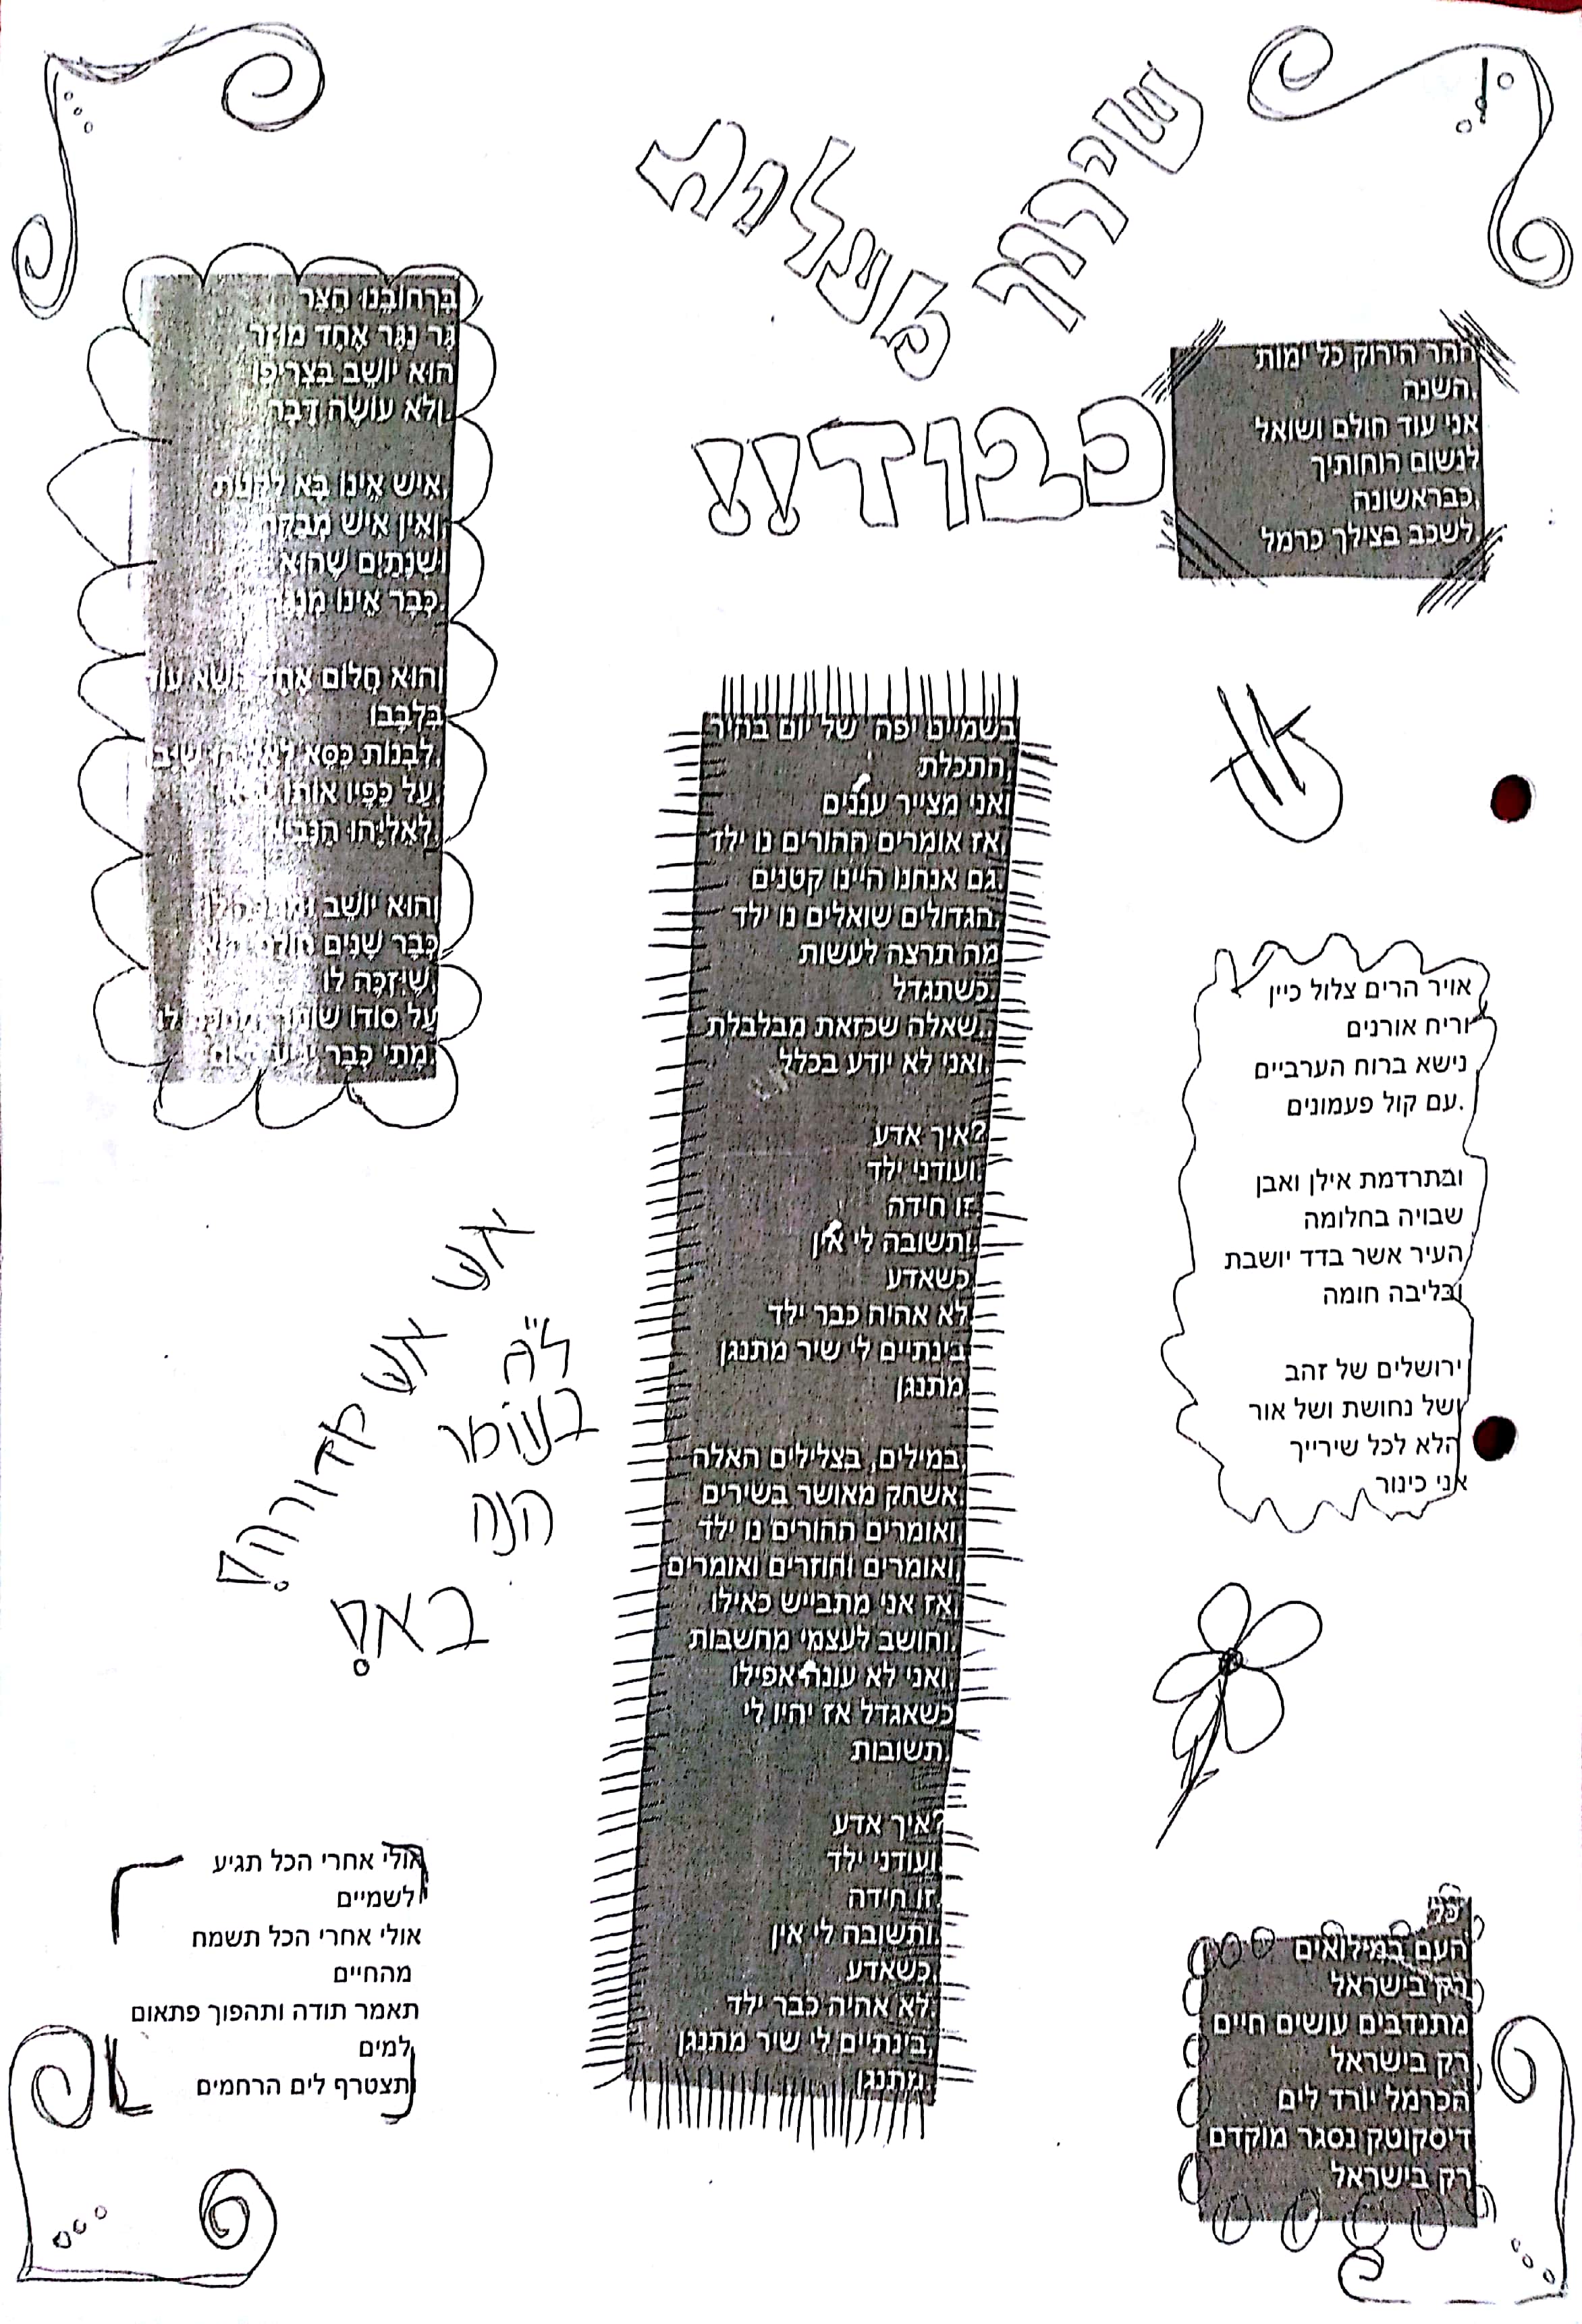 כבוד!!
ההר הירוק כל ימות
.השנה
אני עוד חולם ושואל
לנשום רוחותיך
,כבראשונה
.לשכב בצילך כרמל
אויר הרים צלול כיין
וריח אורנים
נישא ברוח הערביים
.עם קול פעמונים
ובתרדמת אילן ואבן
שבויה בחלומה
העיר אשר בדד יושבת
ובליבה חומה
ירושלים של זהב
ושל נחושת ושל אור
הלא לכל שירייך
אני כינור
העם במילואים
רק בישראל
מתנדבים עושים חיים
רק בישראל
הכרמל יורד לים
דיסקוטק נסגר מוקדם
רק בישראל
בשמיים יפה של יום בהיר
,התכלת
ואני מצייר עננים
,אז אומרים ההורים נו ילד
.גם אנחנו היינו קטנים
,הגדולים שואלים נו ילד
מה תרצה לעשות
.כשתגדל
..שאלה שכזאת מבלבלת
.ואני לא יודע בכלל
?איך אדע
,ועודני ילד
,זו חידה
.ותשובה לי אין
,כשאדע
לא אהיה כבר ילד
בינתיים לי שיר מתנגן
מתנגן
,במילים, בצלילים האלה
,אשחק מאושר בשירים
,ואומרים ההורים נו ילד
,ואומרים וחוזרים ואומרים
,אז אני מתבייש כאילו
,וחושב לעצמי מחשבות
,ואני לא עונה אפילו
כשאגדל אז יהיו לי
.תשובות
?איך אדע
,ועודני ילד
,זו חידה
.ותשובה לי אין
,כשאדע
,לא אהיה כבר ילד
,בינתיים לי שיר מתנגן
.מתנגן
בִּרְחוֹבֵנוּ הַצַּר
גָּר נַגָּר אֶחָד מוּזָר
הוּא יוֹשֵׁב בִּצְרִיפוֹ
.וְלֹא עוֹשֶׂה דָּבָר
,אִישׁ אֵינוֹ בָּא לִקְנוֹת
,וְאֵין אִישׁ מְבַקֵּר
וּשְׁנָתַיִם שֶׁהוּא
.כְּבָר אֵינוֹ מְנַגֵּר
וְהוּא חֲלוֹם אֶחָד נוֹשֵׂא עוֹד
בִּלְבָבוֹ
,לִבְנוֹת כִּסֵּא
,עַל כַּפָּיו אוֹתוֹ
.לְאֵלִיָּהוּ הַנָּבִיא
וְהוּא יוֹשֵׁב
כְּבָר שָׁנִים חוֹלֵם הוּא
,שֶׁיִּזְכֶּה לוֹ
עַל סוֹדוֹ שׁוֹמֵר
.מָתַי כְּבָר
אש
אש
מדורה!
ל"ג
בעומר
הנה
בא!
אולי אחרי הכל תגיע
לשמיים
אולי אחרי הכל תשמח
מהחיים
תאמר תודה ותהפוך פתאום
למים
תצטרף לים הרחמים